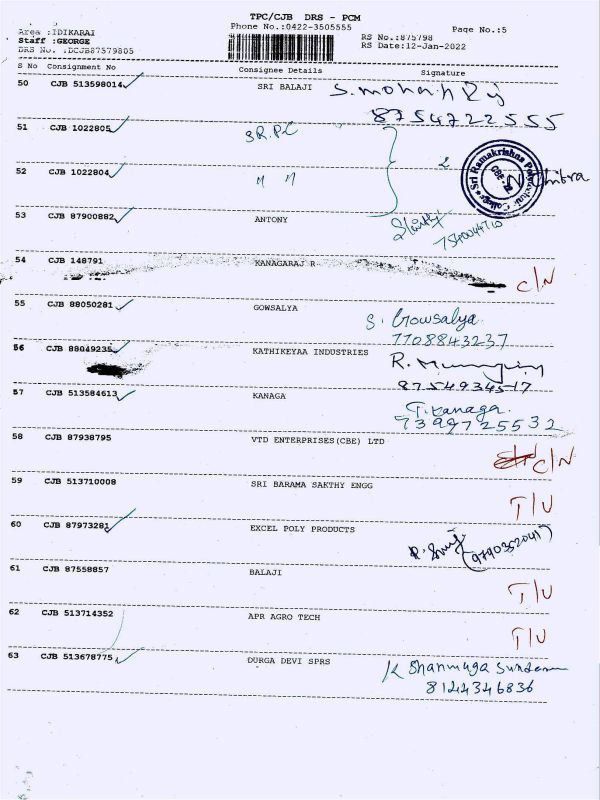 TPC/CJB DRS - PCM
Area :IDIKARAI Phone No.:0422-3505555 Page No.:5
Staff :GEORGE RS No.:875798
DRS No. :DCJB87579805 RS Date:12-Jan-2022
S No Consignment No Consignee Details Signature
50 CJB 513598014 SRI BALAJI S.mohanRaj
8754722555
51 CJB 1022805 S.R.P.C
52 CJB 1022804 " " Chitra
Sri Ramakrishna Polytechnic College
53 CJB 87900882 ANTONY
54 CJB 148791 KANAGARAJ R C/N
55 CJB 88050281 GOWSALYA S. Gowsalya
7708843237
56 CJB 88049235 KATHIKEYAA INDUSTRIES R.
8754934517
57 CJB 513584613 KANAGA T.Kanaga.
7399725532
58 CJB 87938795 VTD ENTERPRISES(CBE) LTD C/N
59 CJB 513710008 SRI BARAMA SAKTHY ENGG T/U
60 CJB 87973281 EXCEL POLY PRODUCTS
61 CJB 87558857 BALAJI T/U
62 CJB 513714352 APR AGRO TECH T/U
63 CJB 513678775 DURGA DEVI SPRS K Shanmuga Sundaram
8144346836